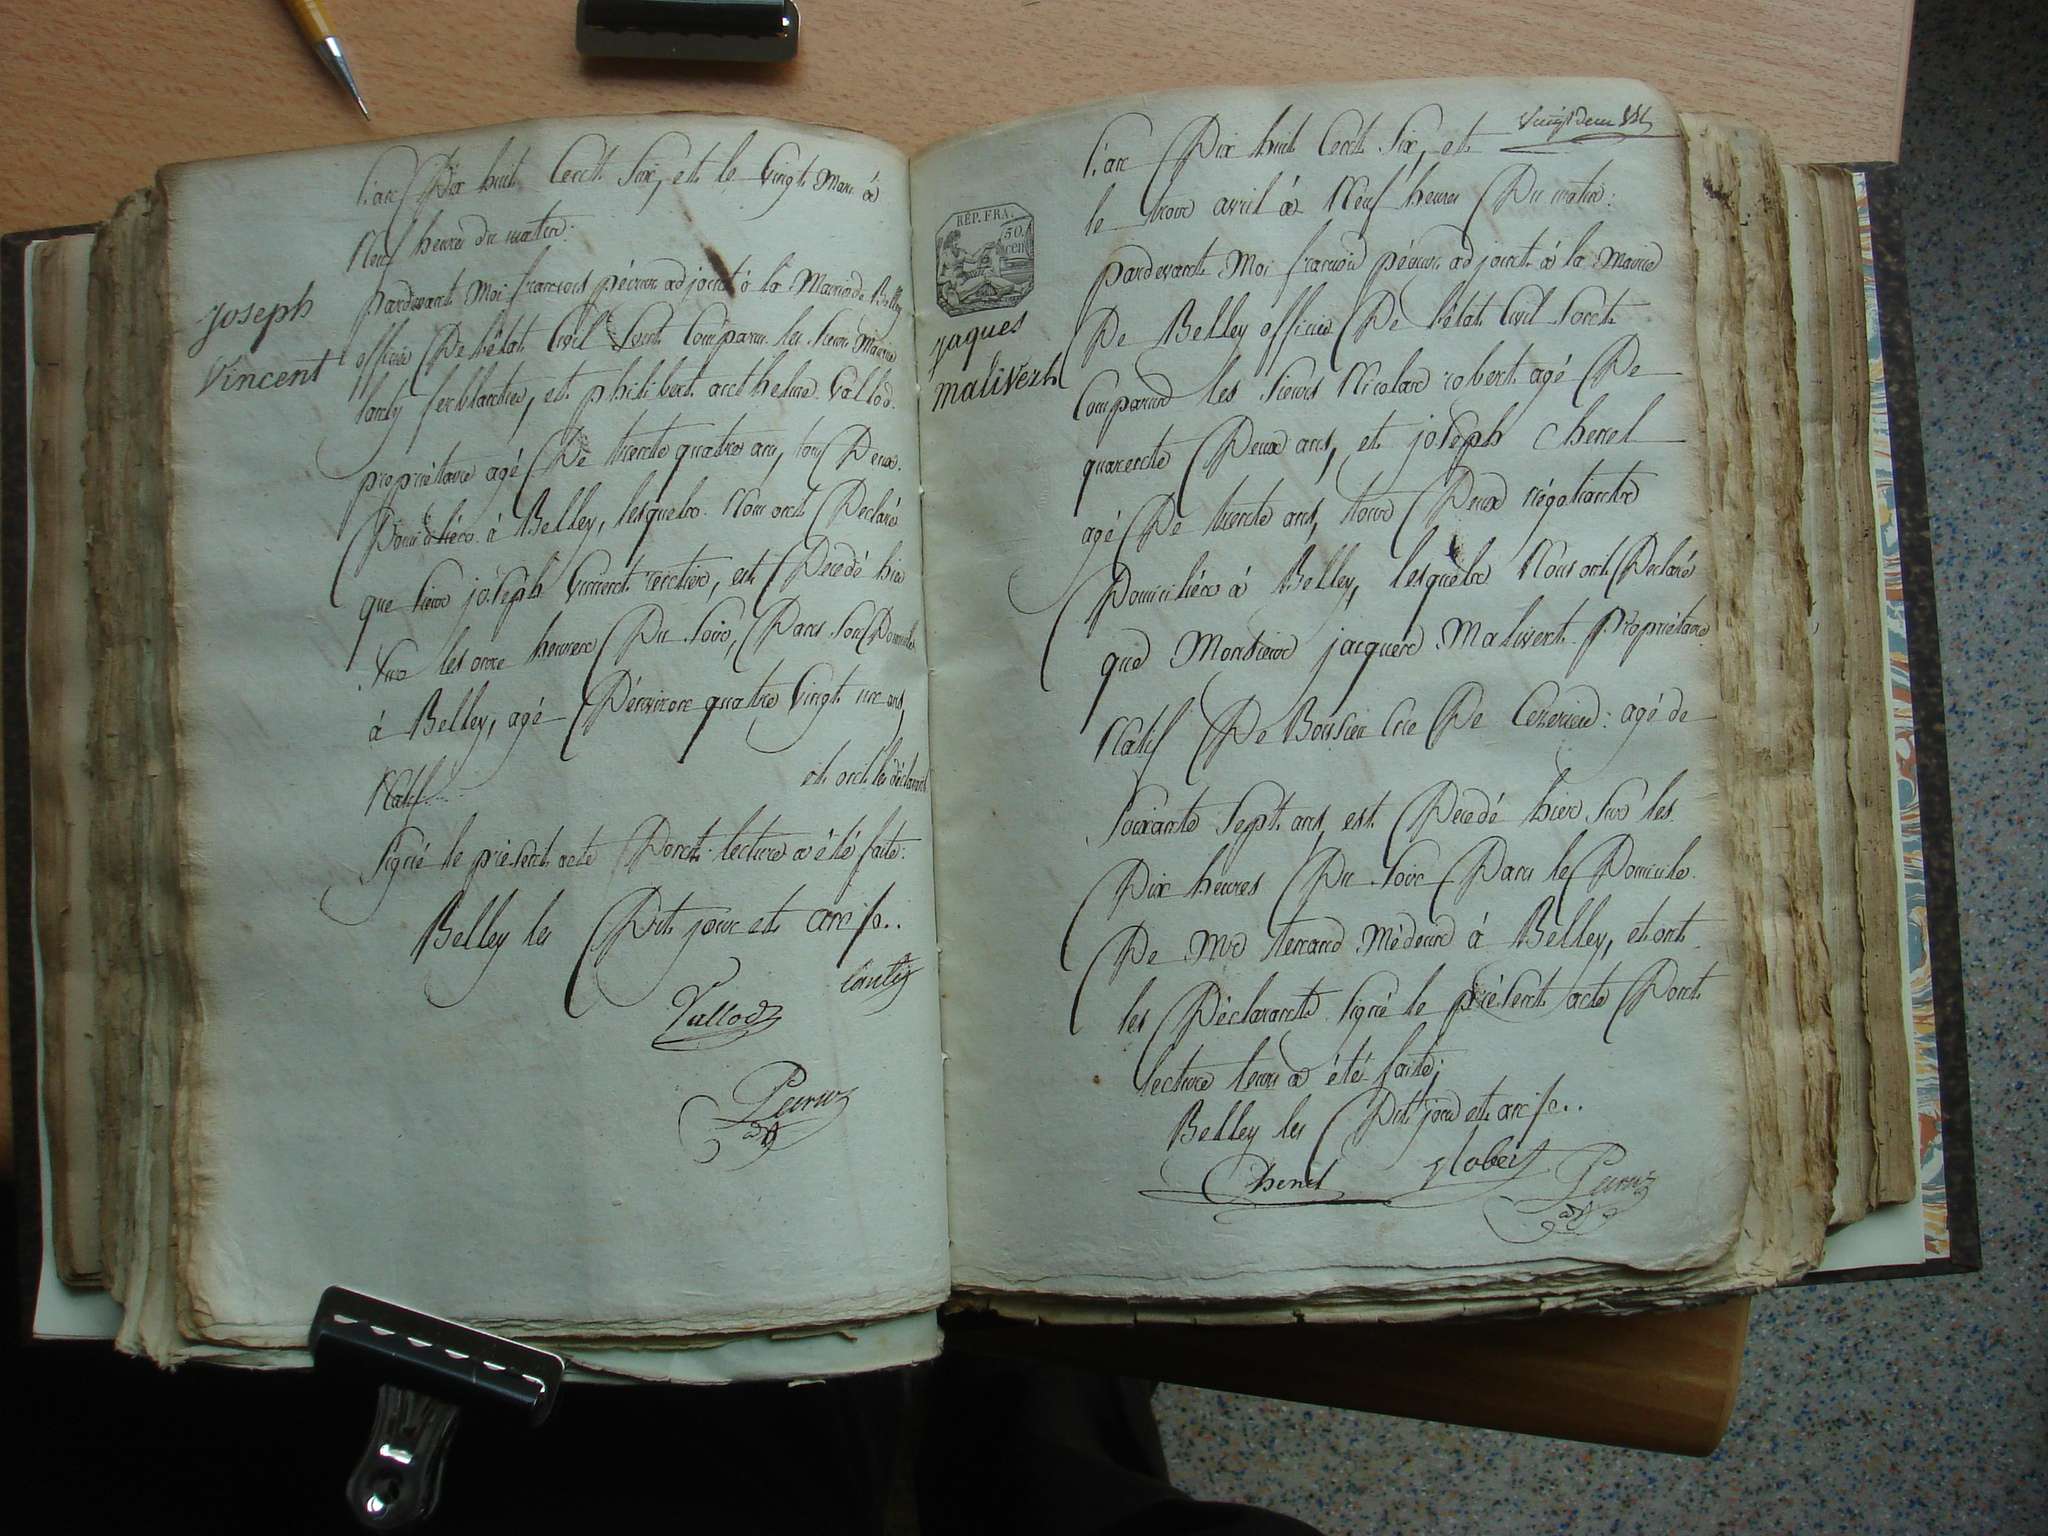 l'an Dix huit Cent Six, et le Vingt Mars à
Neuf heures du matin:
pardevant Moi françois péciux adjoint à la Mairie de Belley
officier De l'état Civil Sont Comparus les sieurs
ferblantier, et philibert anthelme Vallod
propriétaire agé De trente quatre ans, tous Deux
Domiciliés à Belley, lesquels Nous ont Déclaré
que sieur joseph Vincent rentier, est Décédé hier
sur les onze heures Du Soir, Dans son Domicile
à Belley, agé D'environ quatre Vingt un ans,
Natif et ont les déclarants
signé le present acte Dont lecture a été faite:
Belley les Dits jour et an
Vallod
Joseph
Vincent
l'an Dix huit Cent Six, et
le trois avril à Neuf heures Du matin:
pardevant Moi françois adjoint à la Mairie
De Belley officier De l'état Civil Sont
Comparus les sieurs Nicolas robert agé De
quarente Deux ans, et joseph Chenel
agé De trente ans, tous Deux négotiants
Domiciliés à Belley, lesquels Nous ont Déclaré
que Monsieur jacques Malivert Propriétaire
Natif De De Cezerieu: agé de
soixante Sept ans, est Décédé hier sur les
Dix heures Du Soir Dans le Domicile
De Mr Médecin à Belley, et ont
les Déclarants signé le présent acte Dont
lecture leur a été faite,
Belley les Dits jour et an
Chenel Robert
RÉP. FRA.
50
cen
jaques
malivert